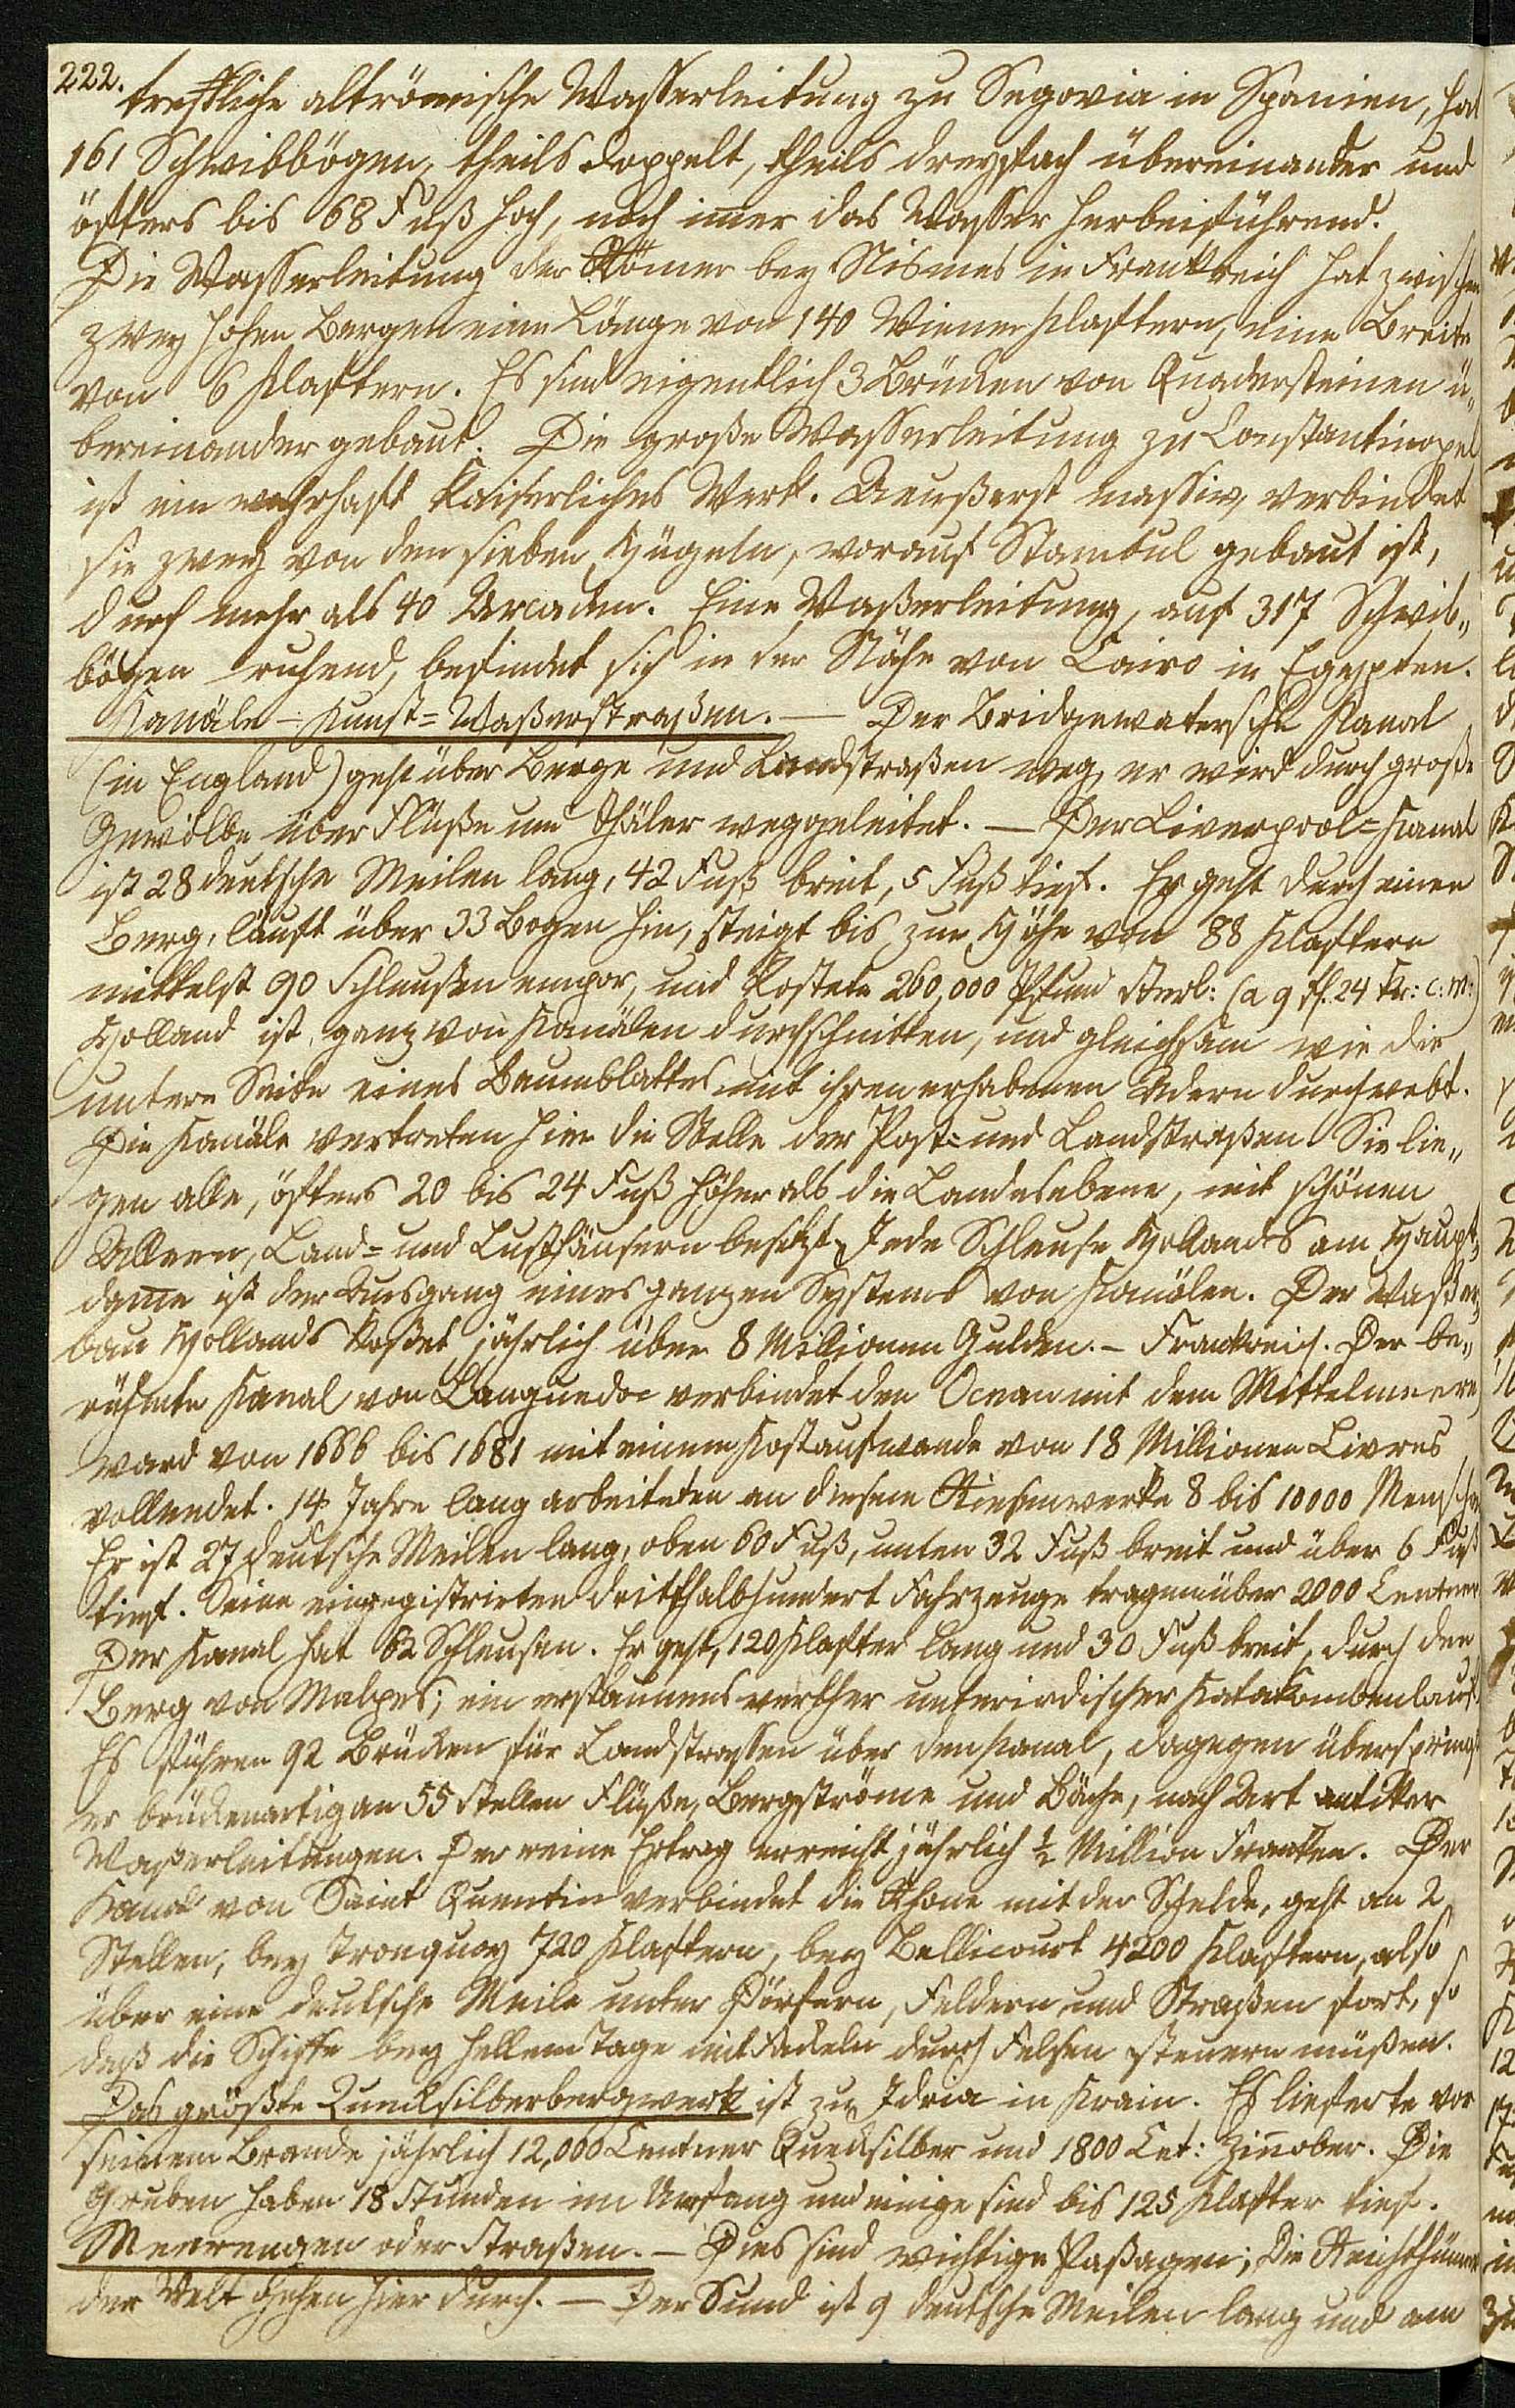 222.
treffliche altrömische Wasserleitung zu Segovia in Spanien, hat
161 Schwibbögen, theils doppelt, theils dreyfach übereinander und
öfters bis 68 Fuß hoch, noch im̄er das Wasser herbeiführend.
Die Wasserleitung der Römer bey Nismes in Frankreich hat zwischen
zwey hohen Bergen eine Länge von 140 Wiener Klaftern, eine Breite
von 6 Klaftern. Es sind eigentlich 3 Brücken von Quadersteinen ü„
bereinander gebaut. Die große Wasserleitung zu Constantinopel
ist ein wahrhaft kaiserliches Werk. Aeußerst massiv, verbindet
sie zwey von den sieben Hügeln, worauf Stambul gebaut ist,
durch mehr als 40 Arcaden. Eine Waßerleitung, auf 317 Schwib„
bögen ruhend, befindet sich in der Nähe von Cairo in Egypten.
Kanäle – Kunst=Waßerstraßen. — Der Bridgewatersche Kanal
(in England) geht über Berge und Landstraßen weg, er wird durch große
Gewölbe über Flüße und Thäler weggeleitet. — Der Liverpool=Kanal
ist 28 deutsche Meilen lang, 42 Fuß breit, 5 Fuß tief. Er geht durch einen
Berg, läuft über 33 Bogen hin, steigt bis zur Höhe von 88 Klaftern
mittelst 90 Schleußen empor, und kostete 260,000 Pfund Sterl: (a 9 fl. 24 kr: C: M:)
Holland ist ganz von Kanälen durchschnitten, und gleichsam wie die
untere Seite eines Baumblattes mit ihren erhabenen Adern durchwebt.
Die Kanäle vertreten hier die Stelle der Post= und Landstraßen. Sie lie„
gen alle, öfters 20 bis 24 Fuß höher als die Landesebene, mit schönen
Alleen, Land= und Lusthäusern besetzt. Jede Schleuse Hollands am Haupt„
dam̄e ist der Ausgang eines ganzen Systems von Kanälen. Der Waßer„
bau Hollands kostet jährlich über 8 Millionen Gulden. – Frankreich. Der be„
rühmte Kanal von Languedoc verbindet den Ocean mit dem Mittelmeere,
ward von 1666 bis 1681 mit einem Kostaufwande von 18 Millionen Livres
vollendet. 14 Jahre lang arbeiteten an diesem Riesenwerke 8 bis 10000 Menschen
Er ist 27 deutsche Meilen lang, oben 60 Fuß, unten 32 Fuß breit und über 6 Fuß
tief. Seine eingegistrirten dritthalbhundert Fahrzeuge tragen über 2000 Centner
Der Kanal hat 62 Schleusen. Er geht, 120 Klafter lang und 30 Fuß breit, durch den
Berg von Malpes; ein erstaunenswerther unterirdischer Katakombenlauf.
Es führen 92 Brücken für Landstrassen über den Kanal, dagegen überspringt
er brückenartig an 55 Stellen Flüße, Bergströme und Bäche, nach Art antiker
Waßerleitungen. Der reine Ertrag erreicht jährlich ½ Million Franken. Der
Kanal von Saint Quentin verbindet die Rhone mit der Schelde, geht an 2
Stellen, bey Tronquoy 720 Klaftern, bey Bellicourt 4200 Klaftern, also
über eine deutsche Meile unter Dörfern, Feldern und Straßen fort, so
daß die Schiffe bey hellem Tage mit Fackeln durch Felsen steuern müßen.
Das größte Quecksilberbergwerk ist zu Idria in Krain. Es lieferte vor
seinem Brande jährlich 12,000 Centner Quecksilber und 1800 Cet: Zin̄ober. Die
Gruben haben 18 Stunden im Umfang und einige sind bis 125 Klafter tief.
Meerengen oder Straßen. – Dies sind wichtige Paßagen; die Reichthümer
der Welt gehen hier durch. — Der Sund ist 9 deutsche Meilen lang und am